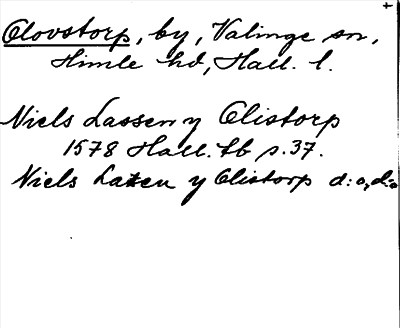 Olovstorp, by, Valinge sn,
Himle hd, Hall. l.
Niels Lassen y Olistorp
1578 Hall. tb s. 37.
Niels Latzen y Olistorp d:o, d:o